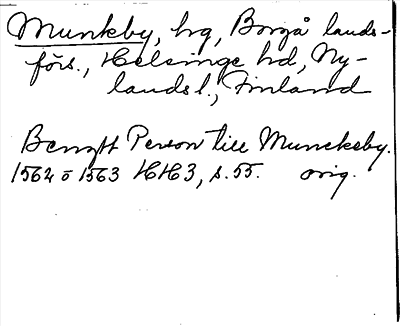 Munkby, hg, Borgå lands-
förs., Helsinge hd, Ny-
landsl., Finland
Bengtt Person till Munckeby.
1562 o 1563 HH3, s. 55. orig.